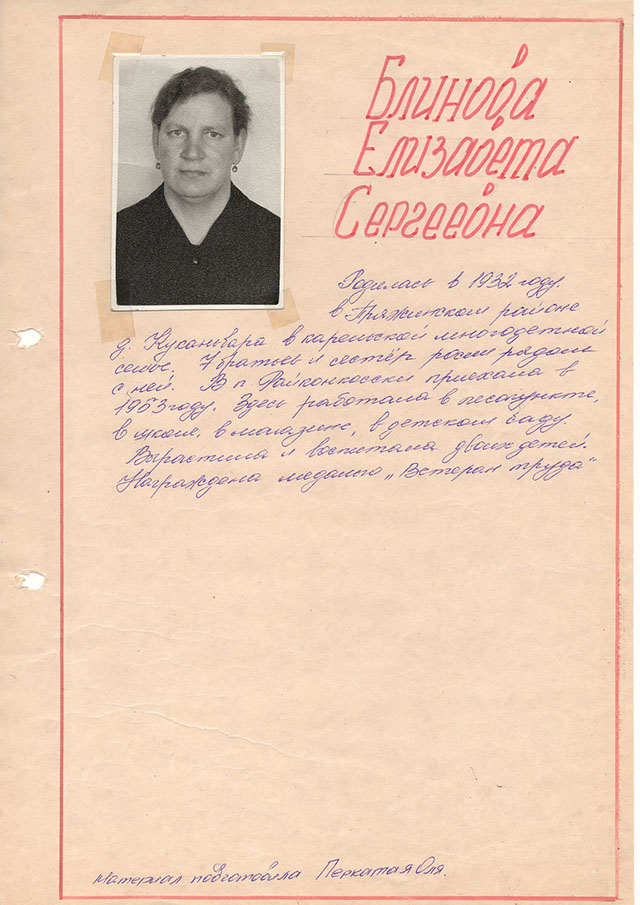 Блинова
Елизавета
Сергеевна
Родилась в 1932 году.
в Пряжинском районе
д. Кусанвара в карельской многодетной
семье. 7 братьев и сестёр росли рядом
с ней. В п Райконкоски приехала в
1953 году. Здесь работала в лесопункте,
в школе, в магазине, в детском саду.
Вырастила и воспитала двоих детей.
Награждена медалью „Ветеран труда"
материал подготовила Перкатая Оля.